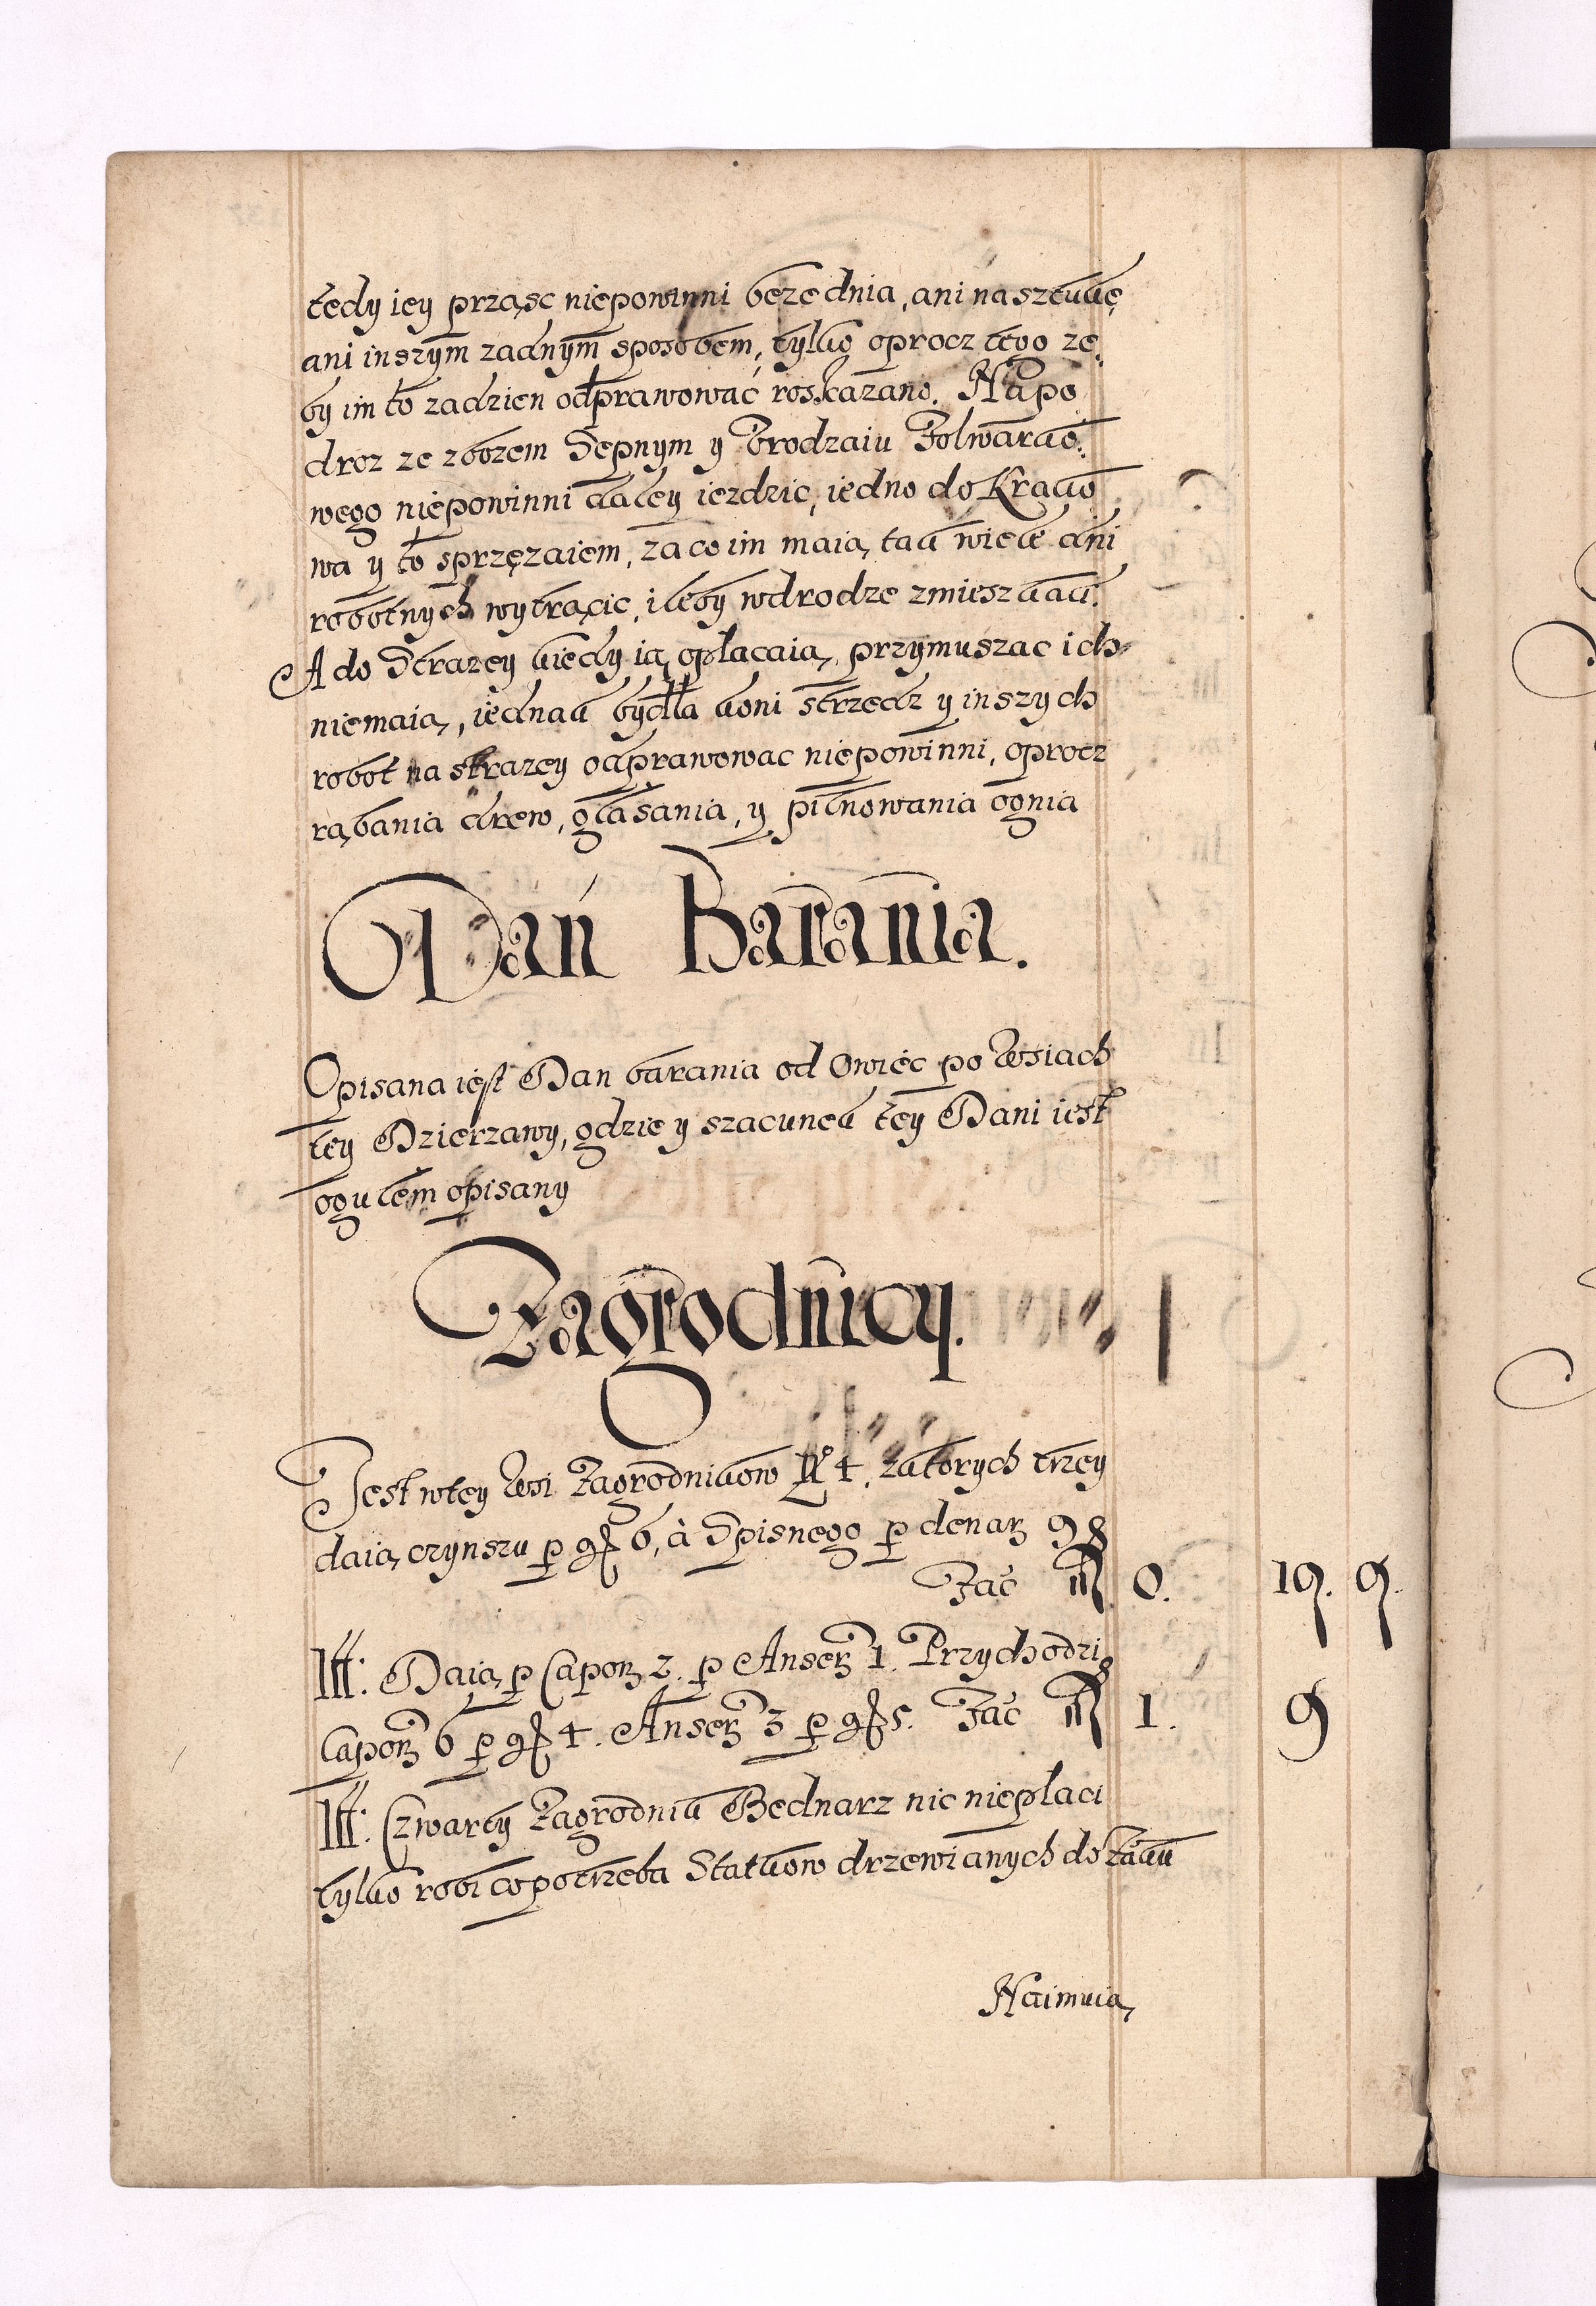 tedy iey prząsc niepowinni beze dnia, ani na sztukę
ani inszym zadnym sposobem, tylko oprocz tego ze
by im to zadzien odprawować roskazano. Na po
droz ze zbozem Sepnym y Vrodzaiu Folwarko
wego niepowinni daley iezdzic, iedno do Krako
wa y to sprzęzaiem, za co im maią tak wiele dni
robotnych wytrącic, ileby wdrodze zmieszkali.
A do Strazey kiedy ią opłacaią, przymuszac ich
niemaią, iednak bydła koni strzedz y inszych
robot na strazey odprawowac niepowinni, oprocz
rąbania drew, głasania, y pilnowania ognia
Dań Barania.
Opisana iest Dan barania od Owiec po Wsiach
tey Dzierzawy, gdzie y szacunek tey Dani iest
ogulem opisany
Zagrodnicy.
Jest wtey Wsi Zagrodnikow No 4. zktorych trzey
daią czynszu p gr 6, à Spisnego p denar 9
Fac m 0. 19. 9.
Itt: Daią p Capon 2. p Anser 1. Przychodzi
Capon 6 p gr 4. Anser 3 p gr 5. Fac m 1. 9
Itt: Czwarty Zagrodnik Bednarz nic niepłaci
tylko robi co potrzeba Statkow drzewianych do Zamku
Naimuią